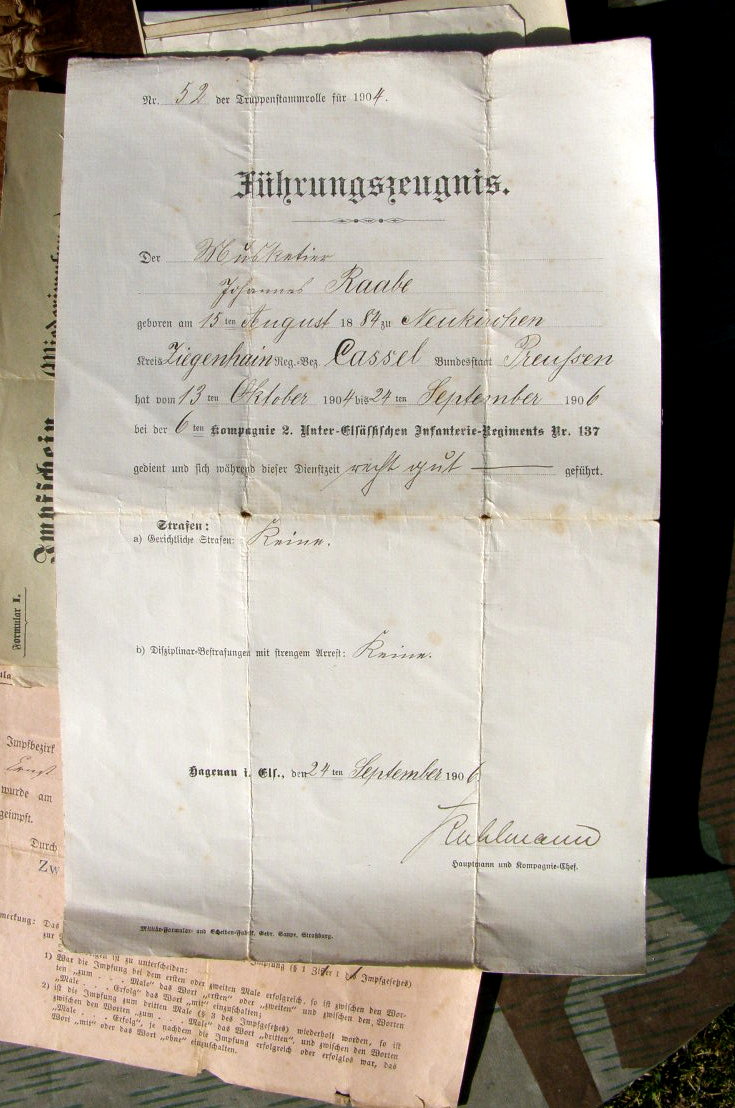 Nr. 52 der Truppenstammrolle für 1904.
Führungszeugnis.
Der Musketier
Johannes Raabe
geboren am 15 ten August 1884 zu Neukirchen
Kreis Ziegenhain Reg.-Bez. Cassel Bundesstaat Preussen
hat vom 13 ten Oktober 1904 bis 24 ten September 1906
bei der 6 ten Kompagnie 2. Unter-Elsässischen Infanterie-Regiments Nr. 137
gedient und sich während dieser Dienstzeit recht gut — geführt.
Strafen:
a) Gerichtliche Strafen: Keine.
b) Disziplinar-Bestrafungen mit strengem Arrest: Keine.
Hagenau i. Els., den 24 ten September 1906
Kuhlmann
Hauptmann und Kompagnie-Chef.
Militär-Formular- und Scheiben-Fabrik, Gebr. Straßburg.
Impfschein
Formular I.
Impfbezirk
Ernst
wurde am
geimpft.
Durch
Zw
merkung: Das
zur
ist zu unterscheiden: Impfung (§ 1 Ziffer 1 des Impfgesetzes)
1) War die Impfung bei dem ersten oder zweiten Male erfolgreich, so ist zwischen den Wor-
ten „zum . . . Male“ das Wort „ersten“ oder „zweiten“ und zwischen den Worten
„Male . . . Erfolg“ das Wort „mit“ einzuschalten;
2) ist die Impfung zum dritten Male (§ 3 des Impfgesetzes) wiederholt worden, so ist
zwischen den Worten „zum . . . Male“ das Wort „dritten“, und zwischen den Worten
„Male . . . Erfolg“, je nachdem die Impfung erfolgreich oder erfolglos war, das
Wort „mit“ oder das Wort „ohne“ einzuschalten.